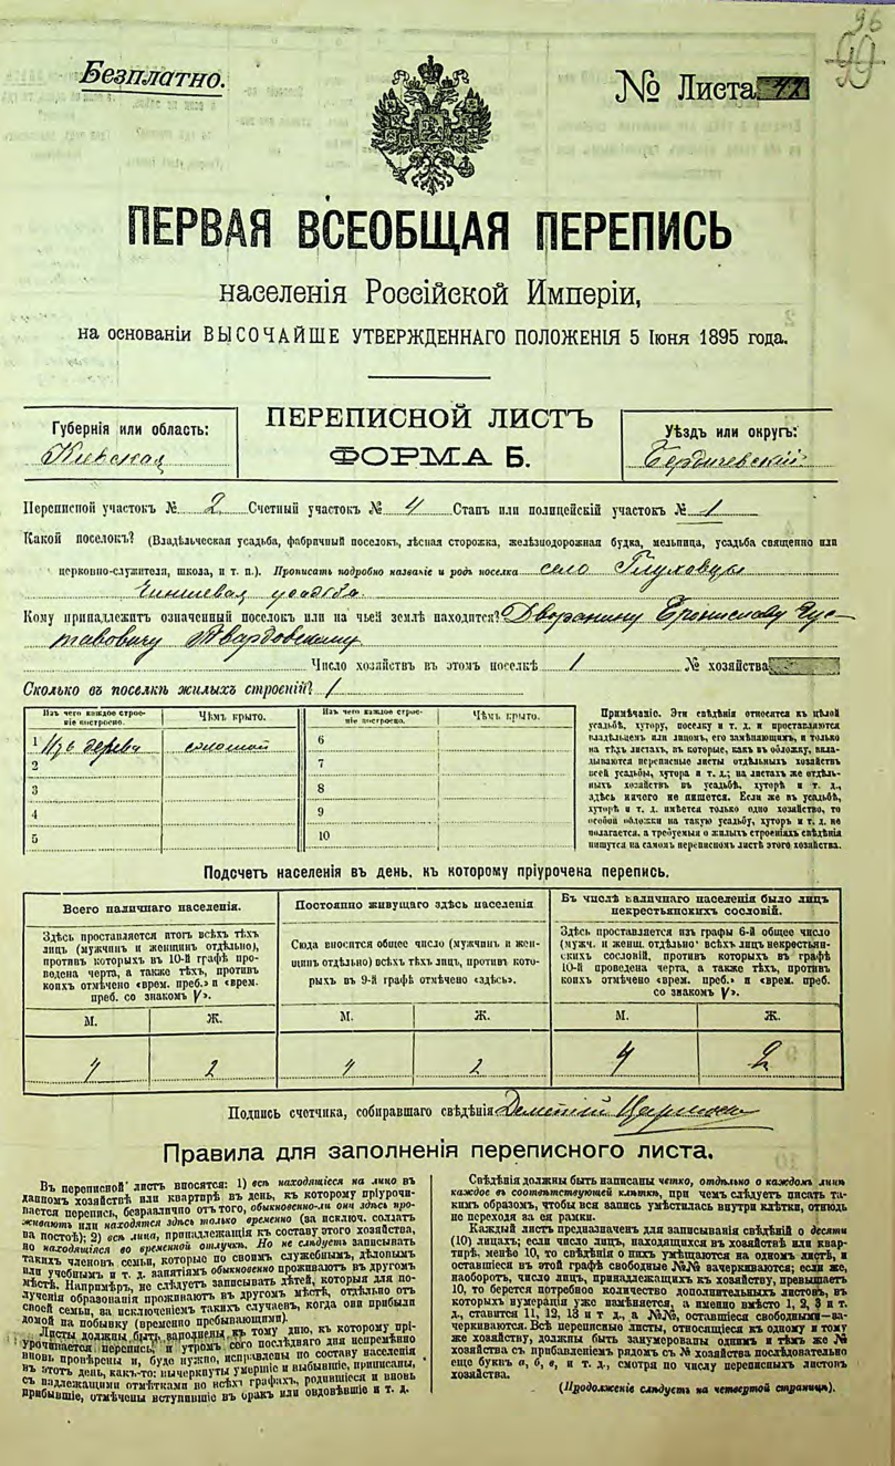 96
99
Безплатно.
№ Листа
ПЕРВАЯ ВСЕОБЩАЯ ПЕРЕПИСЬ
населенія Россійской Имперіи,
на основаніи ВЫСОЧАЙШЕ УТВЕРЖДЕННАГО ПОЛОЖЕНІЯ 5 Іюня 1895 года.
Губернія или область:
Кіевская
ПЕРЕПИСНОЙ ЛИСТЪ
ФОРМА Б.
Уѣздъ или округъ:
Бердичевскій
Переписной участокъ № 2 Счетный участокъ № 4 Станъ или полицейскій участокъ № 1
Какой поселокъ? (Владѣльческая усадьба, фабричный поселокъ, лѣсная сторожка, желѣзнодорожная будка, мельница, усадьба священно или
церковно-служителя, школа, и т. п.). Прописать подробно названіе и родъ поселка село Глуховцы
Чиншевая усадьба
Кому принадлежитъ означенный поселокъ или на чьей землѣ находится? Дворянину Брониславу Гус-
тавовичу Твардовскому
Число хозяйствъ въ этомъ поселкѣ 1 № хозяйства
Сколько въ поселкѣ жилыхъ строеній? 1
Изъ чего каждое строе-
ніе построено.
Чѣмъ крыто.
Изъ чего каждое строе-
ніе построено.
Чѣмъ крыто.
1 Изъ дерева соломой 6
2 7
3 8
4 9
5 10
Примѣчаніе. Эти свѣдѣнія относятся къ цѣлой
усадьбѣ, хутору, поселку и т. д. и проставляются
владѣльцемъ или лицомъ, его замѣняющимъ, и только
на тѣхъ листахъ, въ которые, какъ въ обложку, вкла-
дываются переписные листы отдѣльныхъ хозяйствъ
всей усадьбы, хутора и т. д.; на листахъ же отдѣль-
ныхъ хозяйствъ въ усадьбѣ, хуторѣ и т. д.,
здѣсь ничего не пишется. Если же въ усадьбѣ,
хуторѣ и т. д. имѣется только одно хозяйство, то
особой обложки на такую усадьбу, хуторъ и т. д. не
полагается, а требуемыя о жилыхъ строеніяхъ свѣдѣнія
пишутся на самомъ переписномъ листѣ этого хозяйства.
Подсчетъ населенія въ день, къ которому пріурочена перепись.
Всего наличнаго населенія.
Здѣсь проставляется итогъ всѣхъ тѣхъ
лицъ (мужчинъ и женщинъ отдѣльно),
противъ которыхъ въ 10-й графѣ про-
ведена черта, а также тѣхъ, противъ
коихъ отмѣчено «врем. преб.» и «врем.
преб. со знакомъ V».
Постоянно живущаго здѣсь населенія
Сюда вносится общее число (мужчинъ и жен-
щинъ отдѣльно) всѣхъ тѣхъ лицъ, противъ кото-
рыхъ въ 9-й графѣ отмѣчено «здѣсь».
Въ числѣ наличнаго населенія было лицъ
некрестьянскихъ сословій.
Здѣсь проставляется изъ графы 6-й общее число
(мужч. и женщ. отдѣльно) всѣхъ лицъ некрестьян-
скихъ сословій, противъ которыхъ въ графѣ
10-й проведена черта, а также тѣхъ, противъ
коихъ отмѣчено «врем. преб.» и «врем. преб.
со знакомъ V».
М. Ж. М. Ж. М. Ж.
4 2 4 2 4 2
Подпись счетчика, собиравшаго свѣдѣнія
Правила для заполненія переписного листа.
Въ переписной листъ вносятся: 1) всѣ находящіеся на лицо въ
данномъ хозяйствѣ или квартирѣ въ день, къ которому пріурочи-
вается перепись, безразлично отъ того, обыкновенно-ли они здѣсь про-
живаютъ или находятся здѣсь только временно (за исключ. солдатъ
на постоѣ); 2) всѣ лица, принадлежащія къ составу этого хозяйства,
но находящіяся во временной отлучкѣ. Но не слѣдуетъ записывать
такихъ членовъ семьи, которые по своимъ служебнымъ, дѣловымъ
или учебнымъ и т. д. занятіямъ обыкновенно проживаютъ въ другомъ
мѣстѣ. Напримѣръ, не слѣдуетъ записывать дѣтей, которыя для по-
лученія образованія проживаютъ въ другомъ мѣстѣ, отдѣльно отъ
своей семьи, за исключеніемъ такихъ случаевъ, когда они прибыли
домой на побывку (временно пребывающими).
Листы должны быть заполнены къ тому дню, къ которому прі-
урочивается перепись, и утромъ сего послѣдняго дня непремѣнно
вновь провѣрены и, буде нужно, исправлены по составу населенія
въ этотъ день, какъ-то: вычеркнуты умершіе и выбывшіе, приписаны,
съ надлежащими отмѣтками во всѣхъ графахъ, родившіеся и вновь
прибывшіе, отмѣчены вступившіе въ бракъ или овдовѣвшіе и т. д.
Свѣдѣнія должны быть написаны четко, отдѣльно о каждомъ лицѣ
каждое въ соотвѣтствующей клѣткѣ, при чемъ слѣдуетъ писать та-
кимъ образомъ, чтобы вся запись умѣстилась внутри клѣтки, отнюдь
не переходя за ея рамки.
Каждый листъ предназначенъ для записыванія свѣдѣній о десяти
(10) лицахъ; если число лицъ, находящихся въ хозяйствѣ или квар-
тирѣ, менѣе 10, то свѣдѣнія о нихъ умѣщаются на одномъ листѣ, и
оставшіеся въ этой графѣ свободные №№ вачеркиваются; если же,
наоборотъ, число лицъ, принадлежащихъ къ хозяйству, превышаетъ
10, то берется потребное количество дополнительныхъ листовъ, въ
которыхъ нумерація уже намѣняется, а именно вмѣсто 1, 2, 3 и т.
д., ставится 11, 12, 13 и т д., а №№, оставшіеся свободными—за-
черкиваются. Всѣ переписные листы, относящіеся къ одному и тому
же хозяйству, должны быть занумерованы однимъ и тѣмъ же №
хозяйства съ прибавленіемъ рядомъ съ № хозяйства послѣдовательно
еще буквъ а, б, в, и т. д., смотря по числу переписныхъ листовъ
хозяйства.
(Продолженіе слѣдуетъ на четвертой страницѣ).